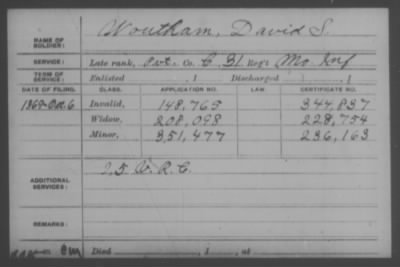 NAME OF SOLDIER: Woutham, David S.
SERVICE: Late rank, Pvt. Co. C, 31 Reg't Mo. Inf
TERM OF SERVICE: Enlisted , 1 Discharged , 1
DATE OF FILING. CLASS. APPLICATION NO. LAW. CERTIFICATE NO.
1869 Oct. 6 Invalid, 148,765 344,837
Widow, 208,098 228,754
Minor, 351,477 236,163
ADDITIONAL SERVICES: V.R.C.
REMARKS:
Died , 1 , at